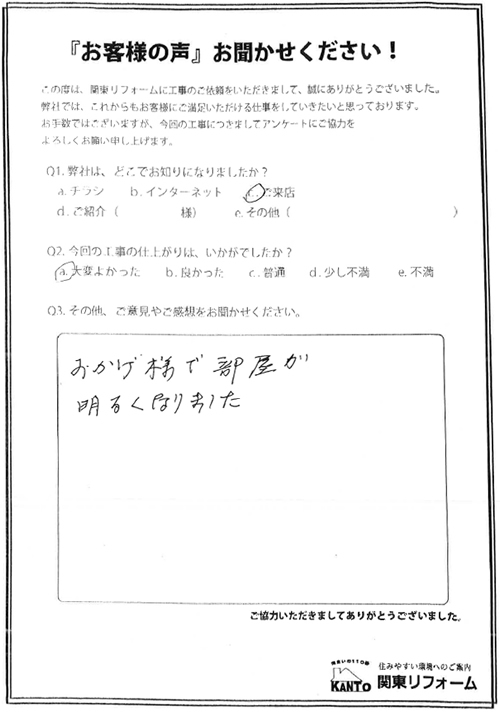 『お客様の声』お聞かせください！
この度は、関東リフォームに工事のご依頼をいただきまして、誠にありがとうございました。
弊社では、これからもお客様にご満足いただける仕事をしていきたいと思っております。
お手数ではございますが、今回の工事につきましてアンケートにご協力を
よろしくお願い申し上げます。
Q1. 弊社は、どこでお知りになりましたか？
a. チラシ b. インターネット c. ご来店
d. ご紹介（ 様） e. その他（ ）
Q2. 今回の工事の仕上がりは、いかがでしたか？
a. 大変よかった b. 良かった c. 普通 d. 少し不満 e. 不満
Q3. その他、ご意見やご感想をお聞かせください。
おかげ様で部屋が
明るくなりました
ご協力いただきましてありがとうございました。
住みやすい環境へのご案内
KANTO 関東リフォーム